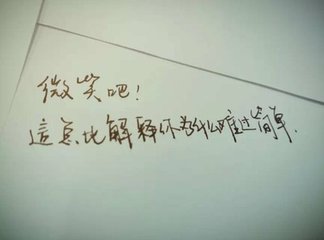 微笑吧！
這点比解释你为什么难过简单.